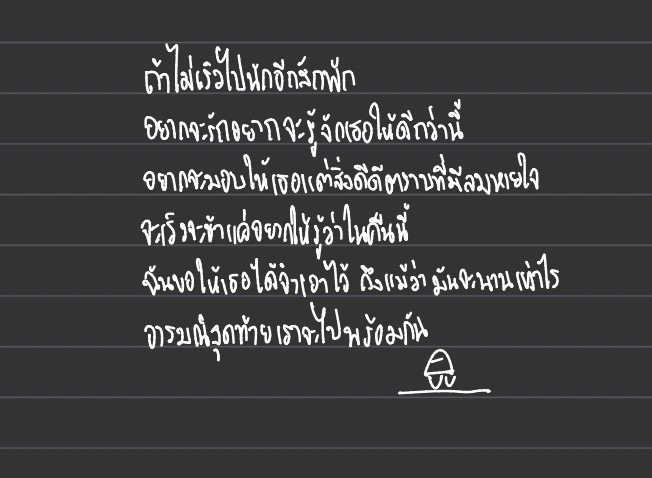 ถ้าไม่เร็วไปนักอีกสักพัก
อยากจะรักอยากจะรู้จักเธอให้ดีกว่านี้
อยากจะมอบให้เธอแต่สิ่งดีดีตราบที่มีลมหายใจ
จะเร็วจะช้าแค่อยากให้รู้ว่าในคืนนี้
ฉันขอให้เธอได้จำเอาไว้ ถึงแม้ว่า มันจะนานเท่าไร
อารมณ์สุดท้ายเราจะไปพร้อมกัน